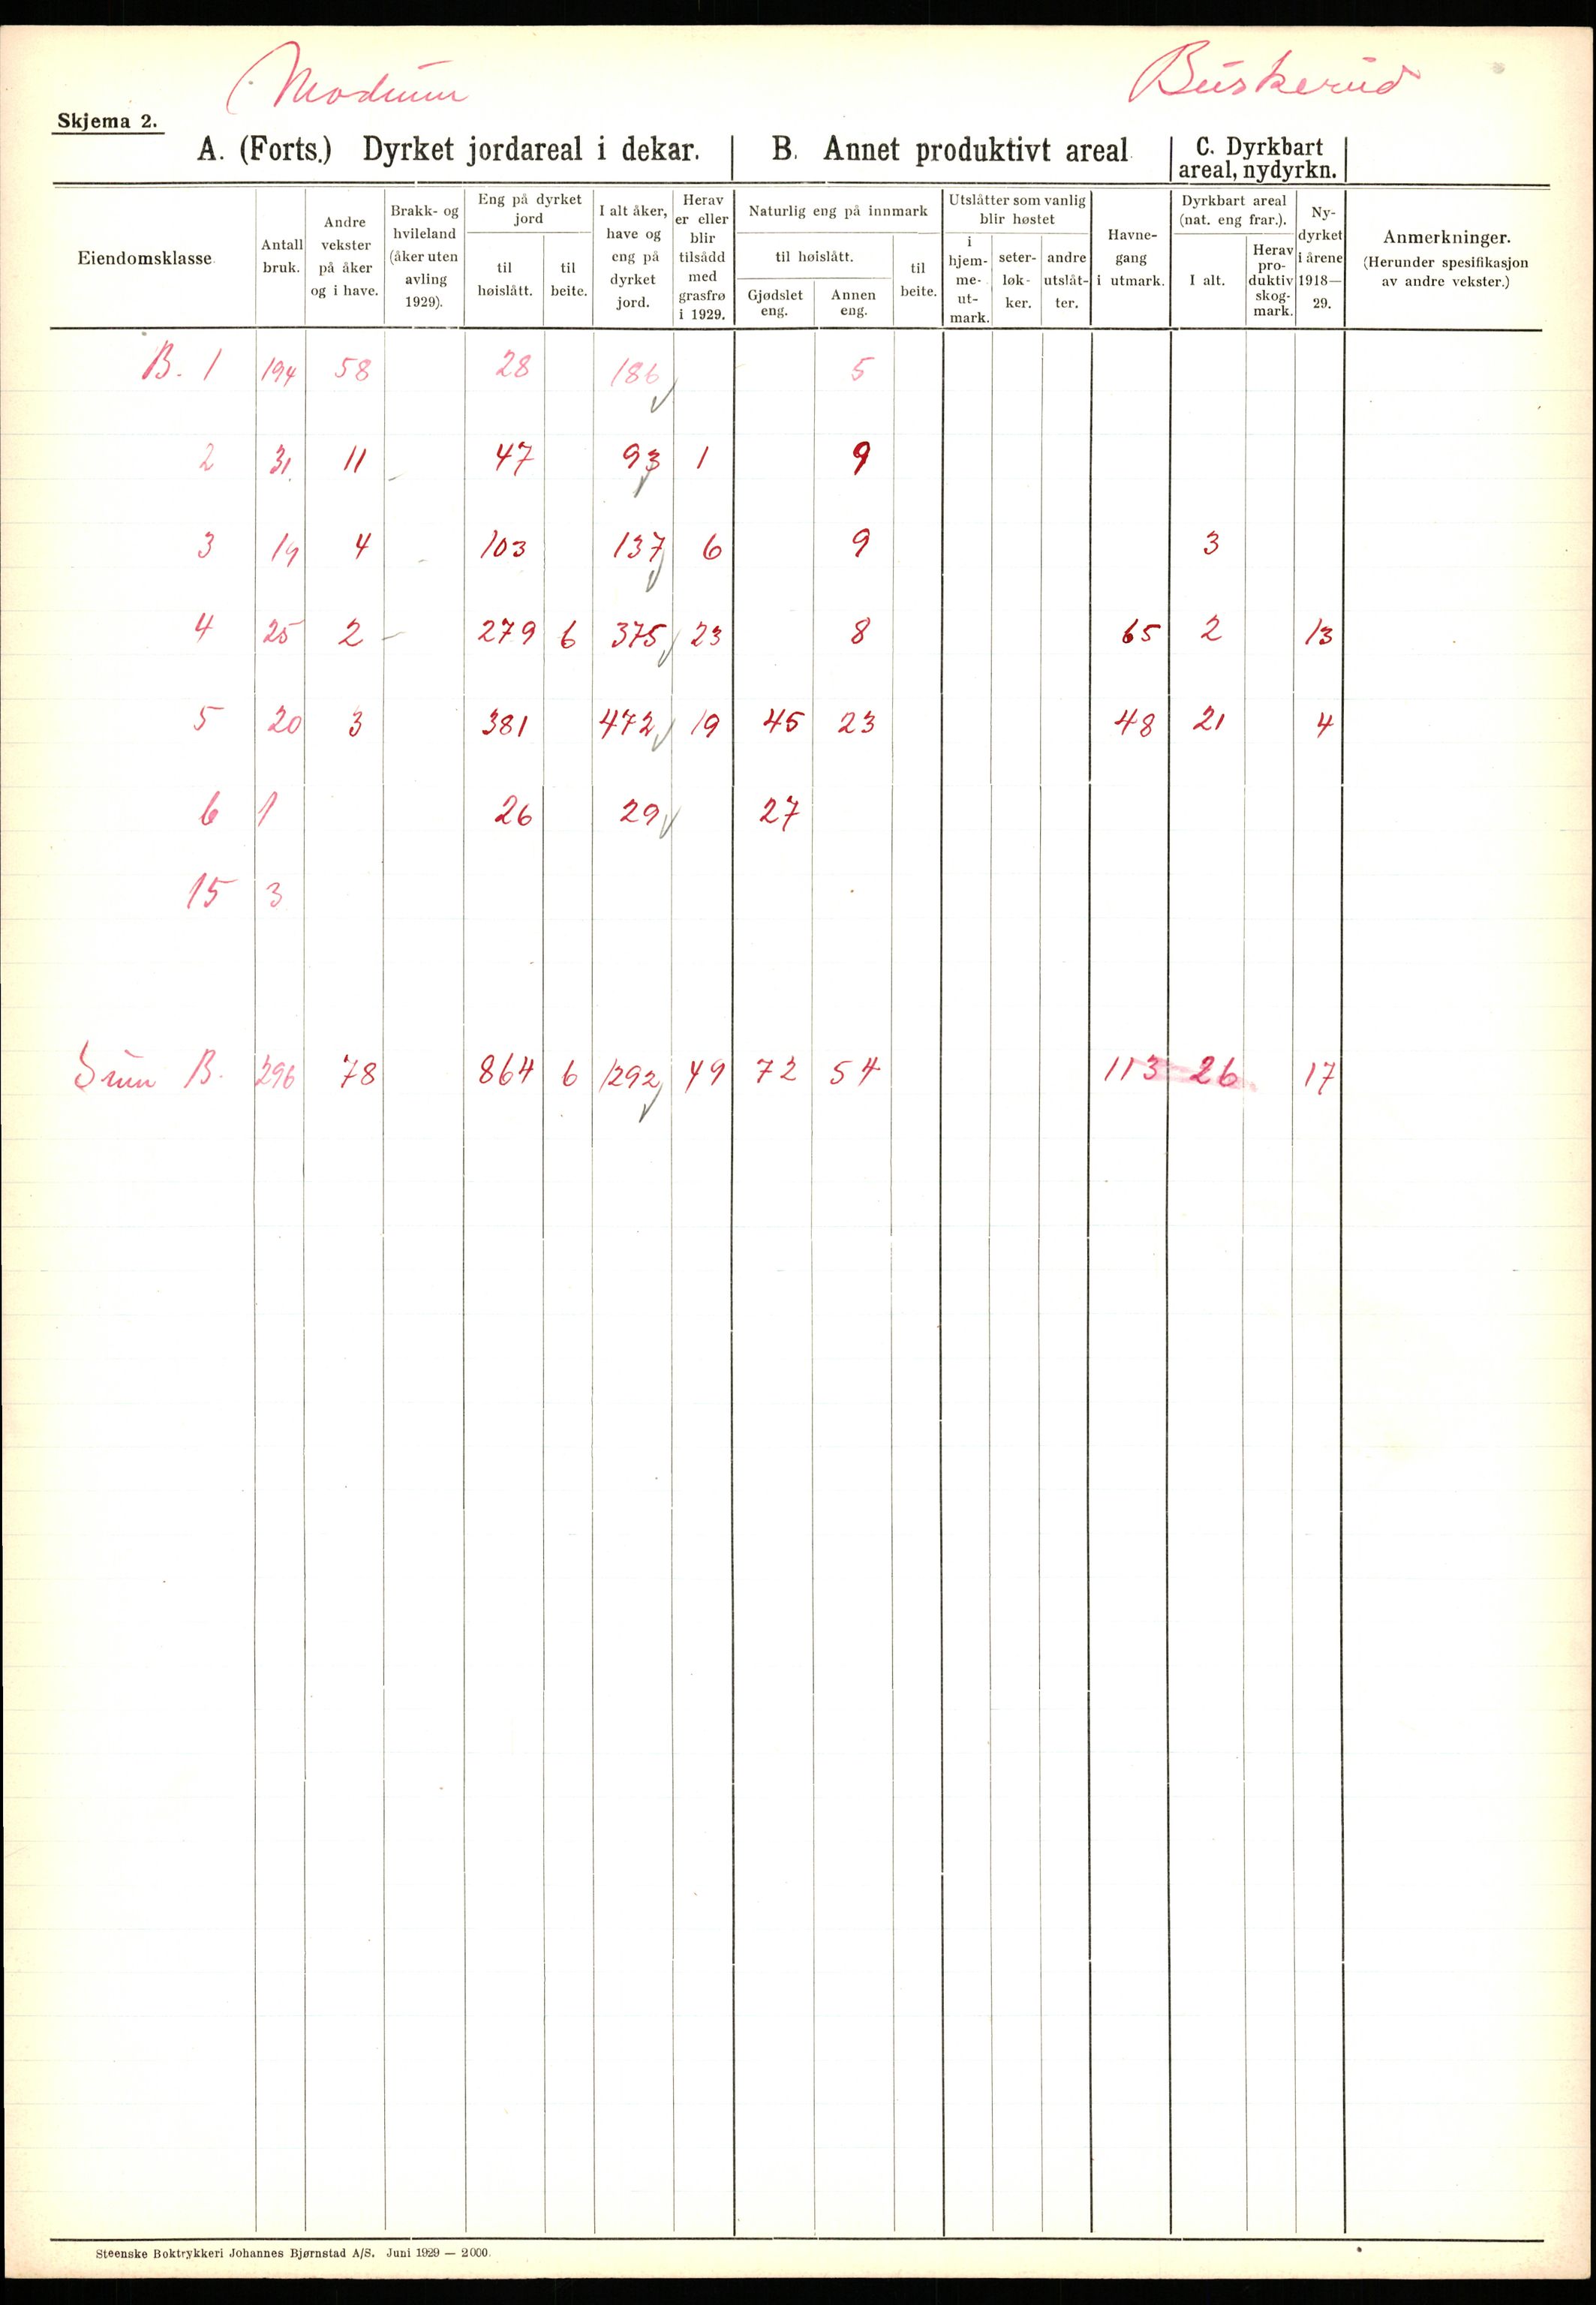 Modum Buskerud
Skjema 2.
A. (Forts.) Dyrket jordareal i dekar. B. Annet produktivt areal C. Dyrkbart areal, nydyrkn.
Eiendomsklasse
Antall bruk.
Andre vekster på åker og i have.
Brakk- og hvileland (åker uten avling 1929).
Eng på dyrket jord
til høislått.
til beite.
I alt åker, have og eng på dyrket jord.
Herav er eller blir tilsådd med grasfrø i 1929.
Naturlig eng på innmark
til høislått.
Gjødslet eng.
Annen eng.
til beite.
Utslåtter som vanlig blir høstet
i hjem- me- ut- mark.
seter- løk- ker.
andre utslåt- ter.
Havne- gang i utmark.
Dyrkbart areal (nat. eng frar.).
I alt.
Herav pro- duktiv skog- mark.
Ny- dyrket i årene 1918— 29.
Anmerkninger. (Herunder spesifikasjon av andre vekster.)
B. 1 194 58 28 186 5
2 31 11 47 93 1 9
3 19 4 103 137 6 9 3
4 25 2 279 6 375 23 8 65 2 13
5 20 3 381 472 19 45 23 48 21 4
6 1 26 29 27
15 3
Sum B. 296 78 864 6 1292 49 72 54 113 26 17
Steenske Boktrykkeri Johannes Bjørnstad A/S. Juni 1929 — 2000.